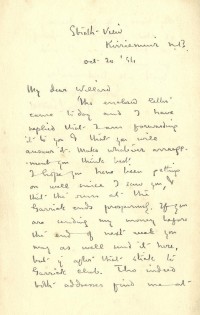 Strath-View
Kirriemuir N.B.
Oct 20 '94
My dear Willard
The enclosed letter
came today and I have
replied that I am forwarding
it to you & that you will
answer it. Make whatever arrange-
ment you think best.
I hope you have been getting
on well since I saw you, &
that the run at the
Garrick ends prosperously. If you
are sending my money before
the end of next week you
may as well send it here,
but if after that stick to
Garrick Club. Tho indeed
both addresses find me